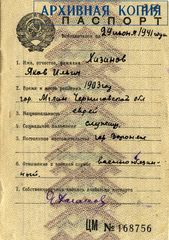 АРХИВНАЯ КОПИЯ
ПАСПОРТ
29 июля 1941 года
1. Имя, отчество, фамилия Хизанов
Яков Ильич
2. Время и место рождения 1903 год
гор Черниговской обл
3. Национальность еврей
4. Социальное положение служащ.
5. Постоянное местожительство гор Воронеж
6. Отношение к военной службе
7. Собственноручная подпись владельца паспорта
ЦМ № 168756